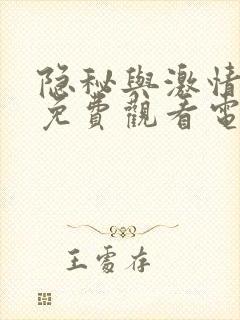 隐秘與激情
免費觀看電
王雪存